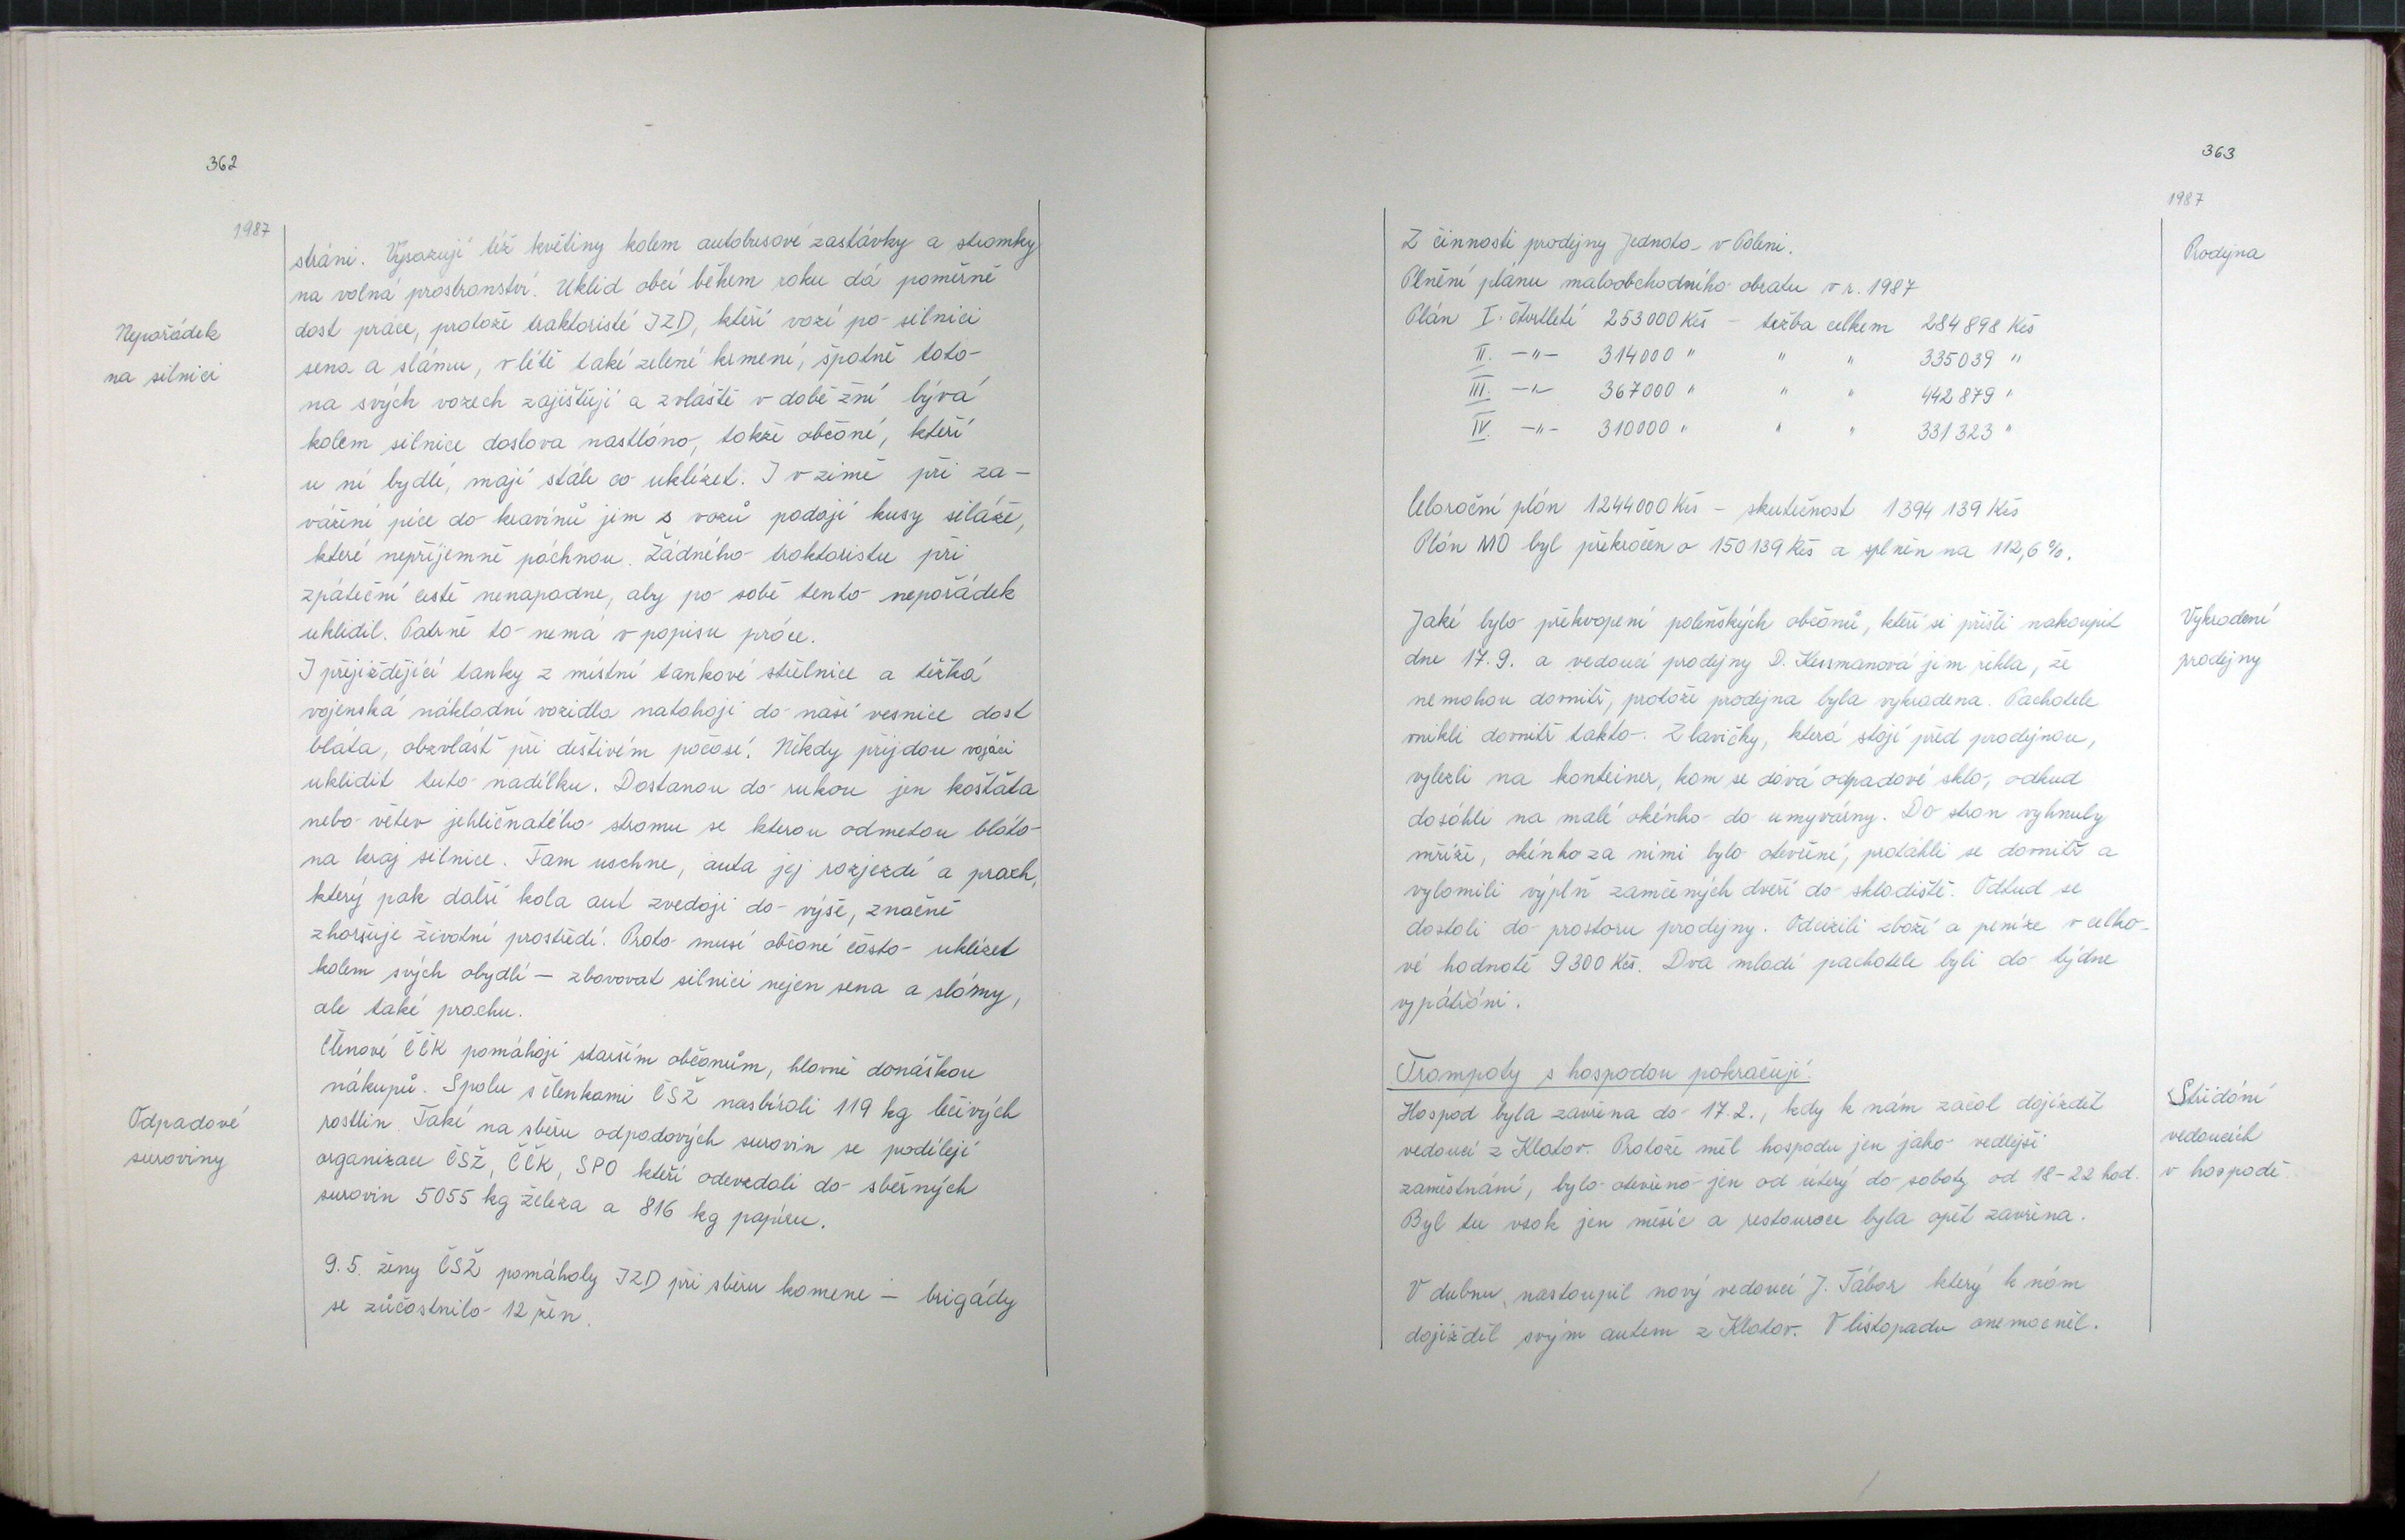 362
1987
stráni. Vysazují též květiny kolem autobusové zastávky a stromky
na volná prostranství. Uklid obcí během roku dá poměrně
Nepořádek
dost práce, protože traktoristé JZD, kteří vozí po silnici
na silnici
sena a slámu, v létě také zelené krmení, špatně toto
na svých vozech zajišťují a zvláště v době žní bývá
kolem silnice doslova nastláno, takže občané, kteří
u ní bydlí, mají stále co uklízet. I v zimě při za-
vážení píce do kravínů jim s vozů padají kusy siláže,
které nepříjemně páchnou. Žádného traktoristu při
zpáteční cestě nenapadne, aby po sobě tento nepořádek
uklidil. Patrně to nemá v popisu práce.
I přejíždějící tanky z místní tankové střelnice a těžká
vojenská nákladní vozidla natahají do naší vesnice dost
bláta, obzvlášť při deštivém počasí. Někdy přijdou vojáci
uklidit tuto nadílku. Dostanou do rukou jen košťata
nebo větev jehličnatého stromu se kterou odmetou bláto
na kraj silnice. Tam uschne, auta jej rozjezdí a prach,
který pak další kola aut zvedají do výše, značně
zhoršuje životní prostředí. Proto musí občané často uklízet
kolem svých obydlí – zbavovat silnici nejen sena a slámy,
ale také prachu.
Členové ČČK pomáhají starším občanům, hlavně donáškou
nákupů. Spolu s členkami ČSŽ nasbírali 119 kg léčivých
Odpadové
rostlin. Také na sběru odpadových surovin se podílejí
suroviny
organizace ČSŽ, ČČK, SPO kteří odevzdali do sběrných
surovin 5055 kg železa a 816 kg papíru.
9.5. ženy ČSŽ pomáhaly JZD při sběru kamene – brigády
se zúčastnilo 12 žen.
363
1987
Z činnosti prodejny Jednota v Poleni.
Prodejna
Plnění plánu maloobchodního obratu v r. 1987
Plán I. čtvrtletí 253000 Kčs – tržba celkem 284898 Kčs
II. –"– 314000 " " " 335039 "
III. –"– 367000 " " " 442879 "
IV. –"– 310000 " " " 331323 "
Celoroční plán 1244000 Kčs – skutečnost 1394139 Kčs
Plán MO byl překročen o 150139 Kčs a splněn na 112,6 %.
Jaké bylo překvapení poleňských občanů, kteří si přišli nakoupit
Vykradení
dne 17.9. a vedoucí prodejny D. Kessmanová jim řekla, že
prodejny
nemohou dovnitř, protože prodejna byla vykradena. Pachatele
vnikli dovnitř takto. Z lavičky, která stojí před prodejnou,
vylezli na konteiner, kam se dává odpadové sklo, odkud
dosáhli na malé okénko do umyvárny. Do stran vyhnuly
mříže, okénko za nimi bylo otevřené, protáhli se dovnitř a
vylomili výplň zamčených dveří do skladiště. Odtud se
dostali do prostoru prodejny. Odcizili zboží a peníze v celko-
vé hodnotě 9300 Kčs. Dva mladí pachatele byli do týdne
vypátráni.
Trampoty s hospodou pokračují.
Hospod byla zavřena do 17.2., kdy k nám začal dojíždět
Střídání
vedoucí z Klatov. Protože měl hospodu jen jako vedlejší
vedoucích
zaměstnání, bylo otevřeno jen od úterý do soboty od 18-22 hod.
v hospodě
Byl tu vsak jen měsíc a restaurace byla opět zavřena.
V dubnu nastoupil nový vedoucí J. Tábor který k nám
dojížděl svým autem z Klatov. V listopadu onemocněl.